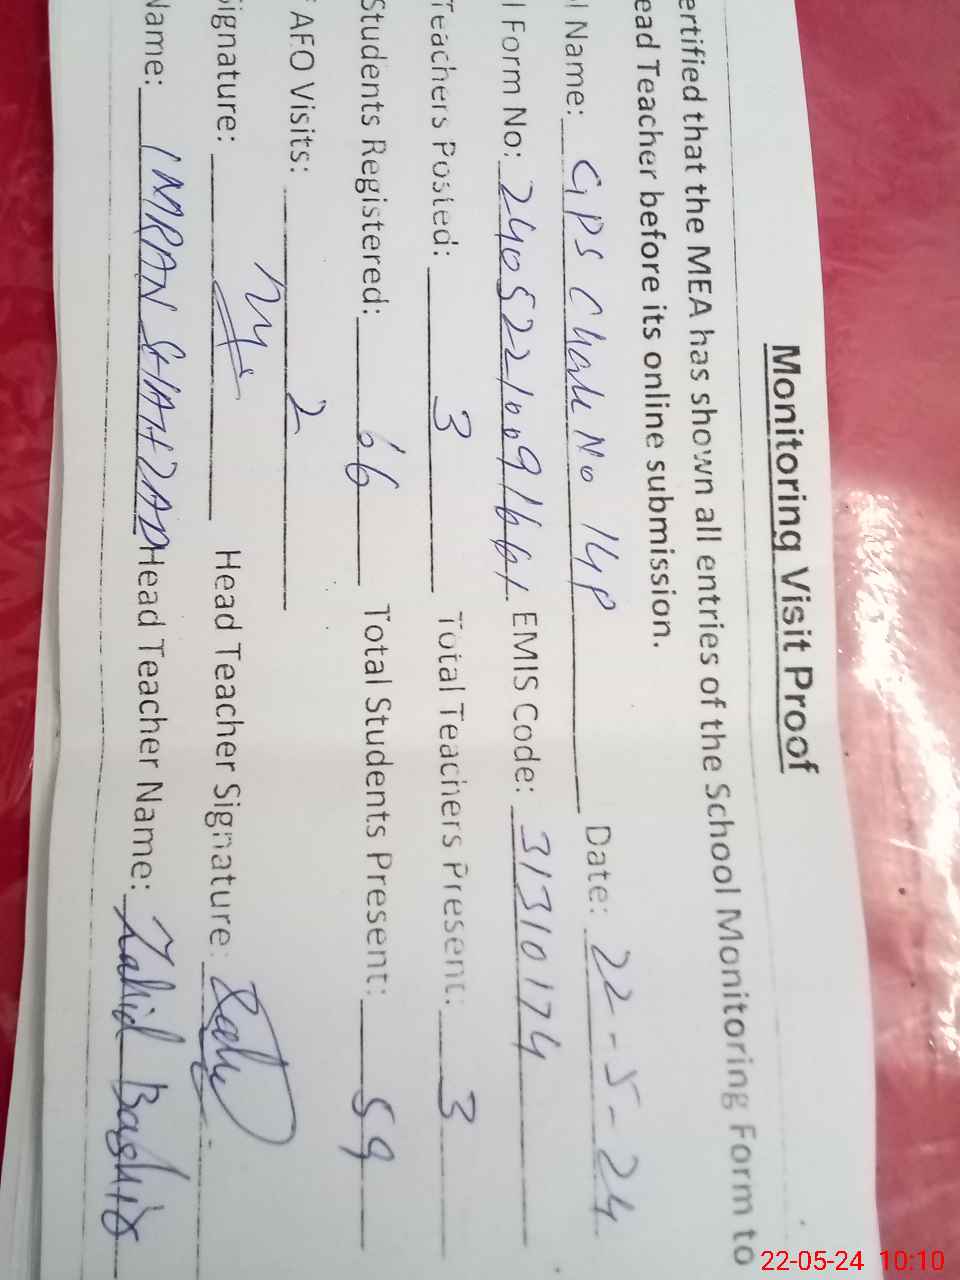 Monitoring Visit Proof
ertified that the MEA has shown all entries of the School Monitoring Form to
ead Teacher before its online submission.
l Name: GPS Chak No 14P Date: 22-5-24
l Form No: 24052210091661 EMIS Code: 31310174
Teachers Posted: 3 Total Teachers Present: 3
Students Registered: 66 Total Students Present: 59
AEO Visits: 2
Signature: Head Teacher Signature:
Name: IMRAN SHAHZAD Head Teacher Name: Zahid Bashir
22-05-24 10:10